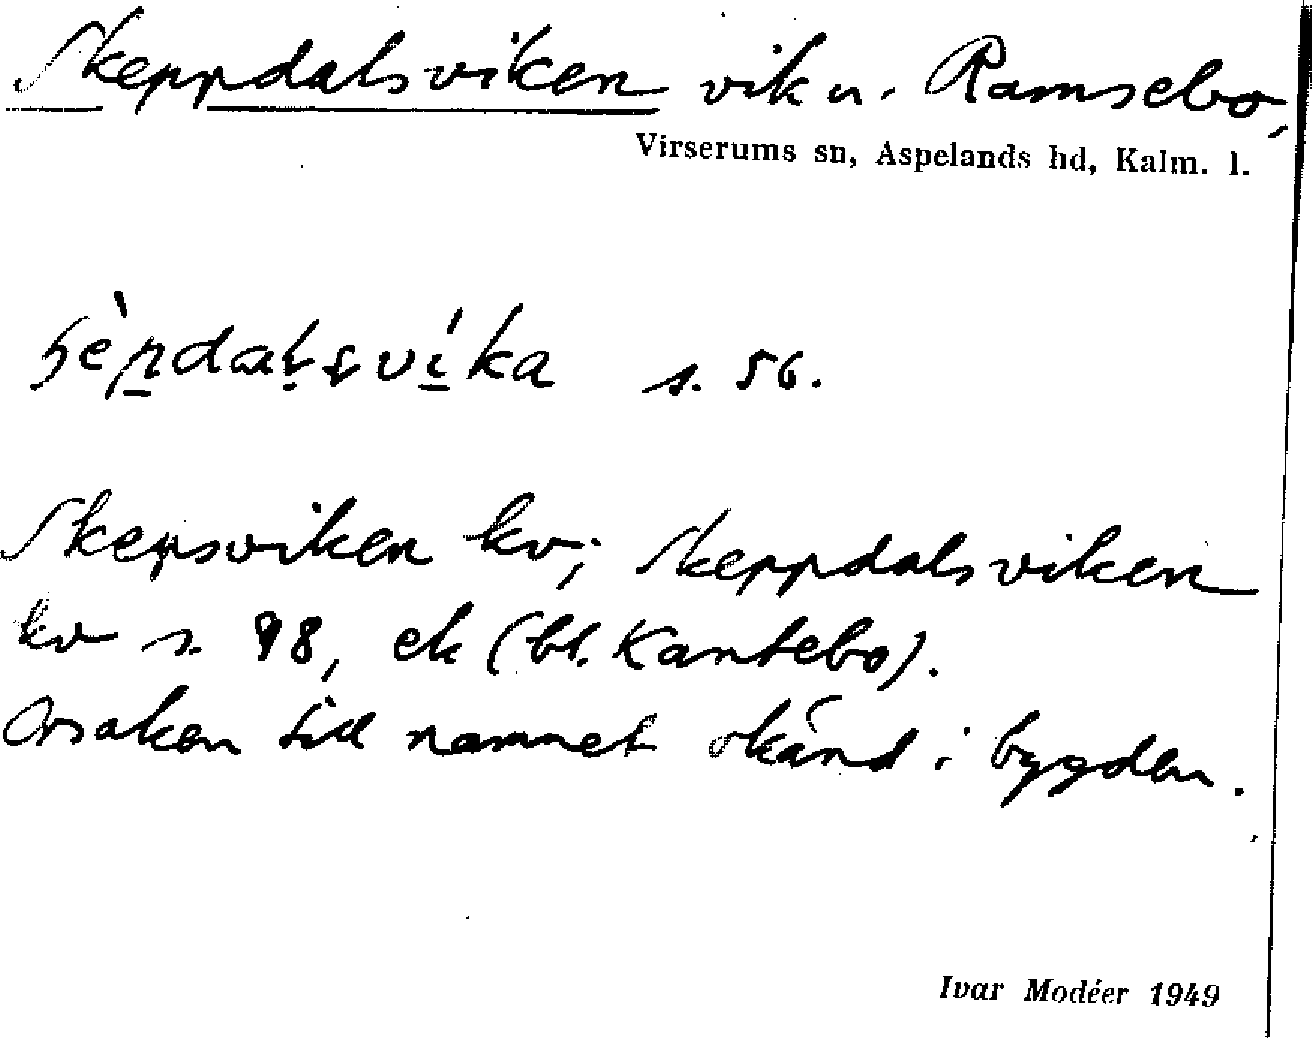 Skeppdalsviken vik u. Ramsebo,
Virserums sn, Aspelands hd, Kalm. l.
s. 56.
Skepsviken kv; Skeppdalsviken
kv s. 98, ek (bl. Kantebo).
Orsaken till namnet okänd i bygden.
Ivar Modéer 1949